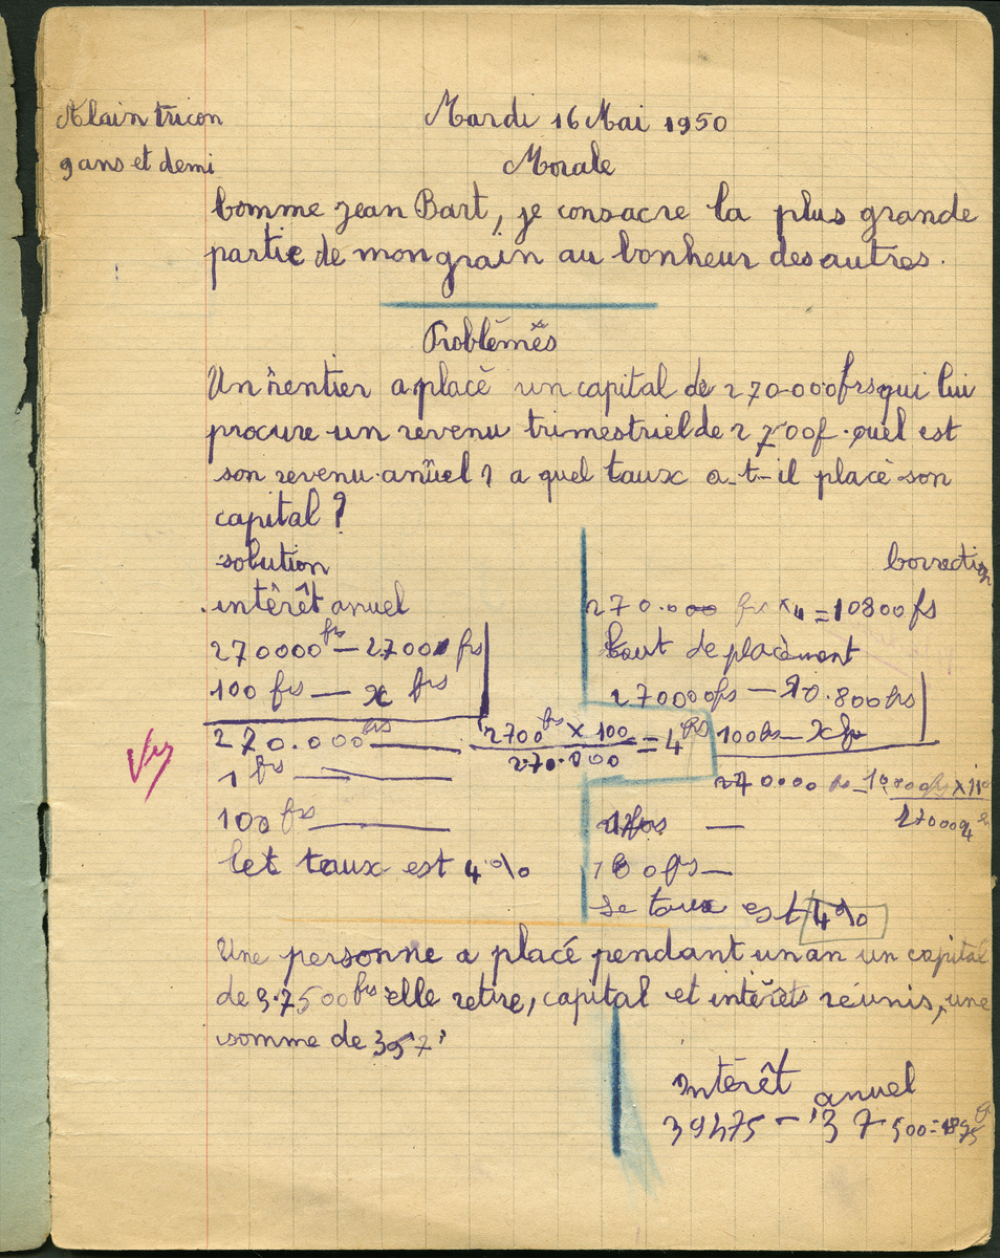 Alain tricon
9 ans et demi
Mardi 16 Mai 1950
Morale
Comme Jean Bart, je consacre la plus grande
partie de mon grain au bonheur des autres.
Problèmes
Un rentier a placé un capital de 270.000frs qui lui
procure un revenu trimestriel de 2700f. quel est
son revenu anuel ? a quel taux a-t-il placé son
capital ?
solution
intérêt anuel
270000frs — 2700 frs
100 frs — x frs
270.000frs — 2700frs x 100 / 270.000 = 4frs
1 frs
100 frs
let taux est 4%
Correction
270.000 frs x 4 = 10800 fs
taut de placèment
270000frs — 10.800frs
100frs — x frs
270000 frs
1frs —
100frs —
Le taux est 4%
Une personne a placé pendant un an un capital
de 37500frs elle retire, capital et intérêts réunis, une
somme de 397
Intérêt anuel
39475 - 37500 = 1875
Vu